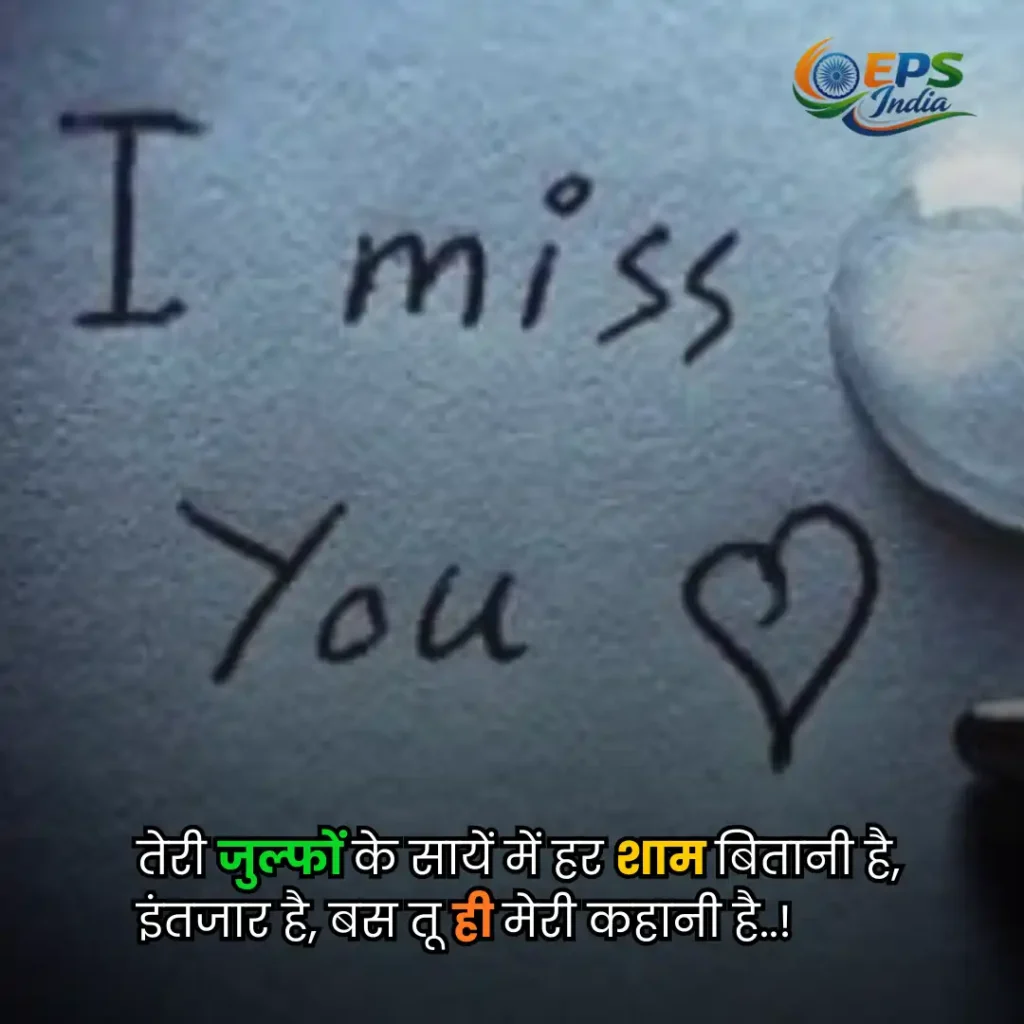 EPS
India
I miss
You
तेरी जुल्फों के सायें में हर शाम बितानी है,
इंतजार है, बस तू ही मेरी कहानी है..!